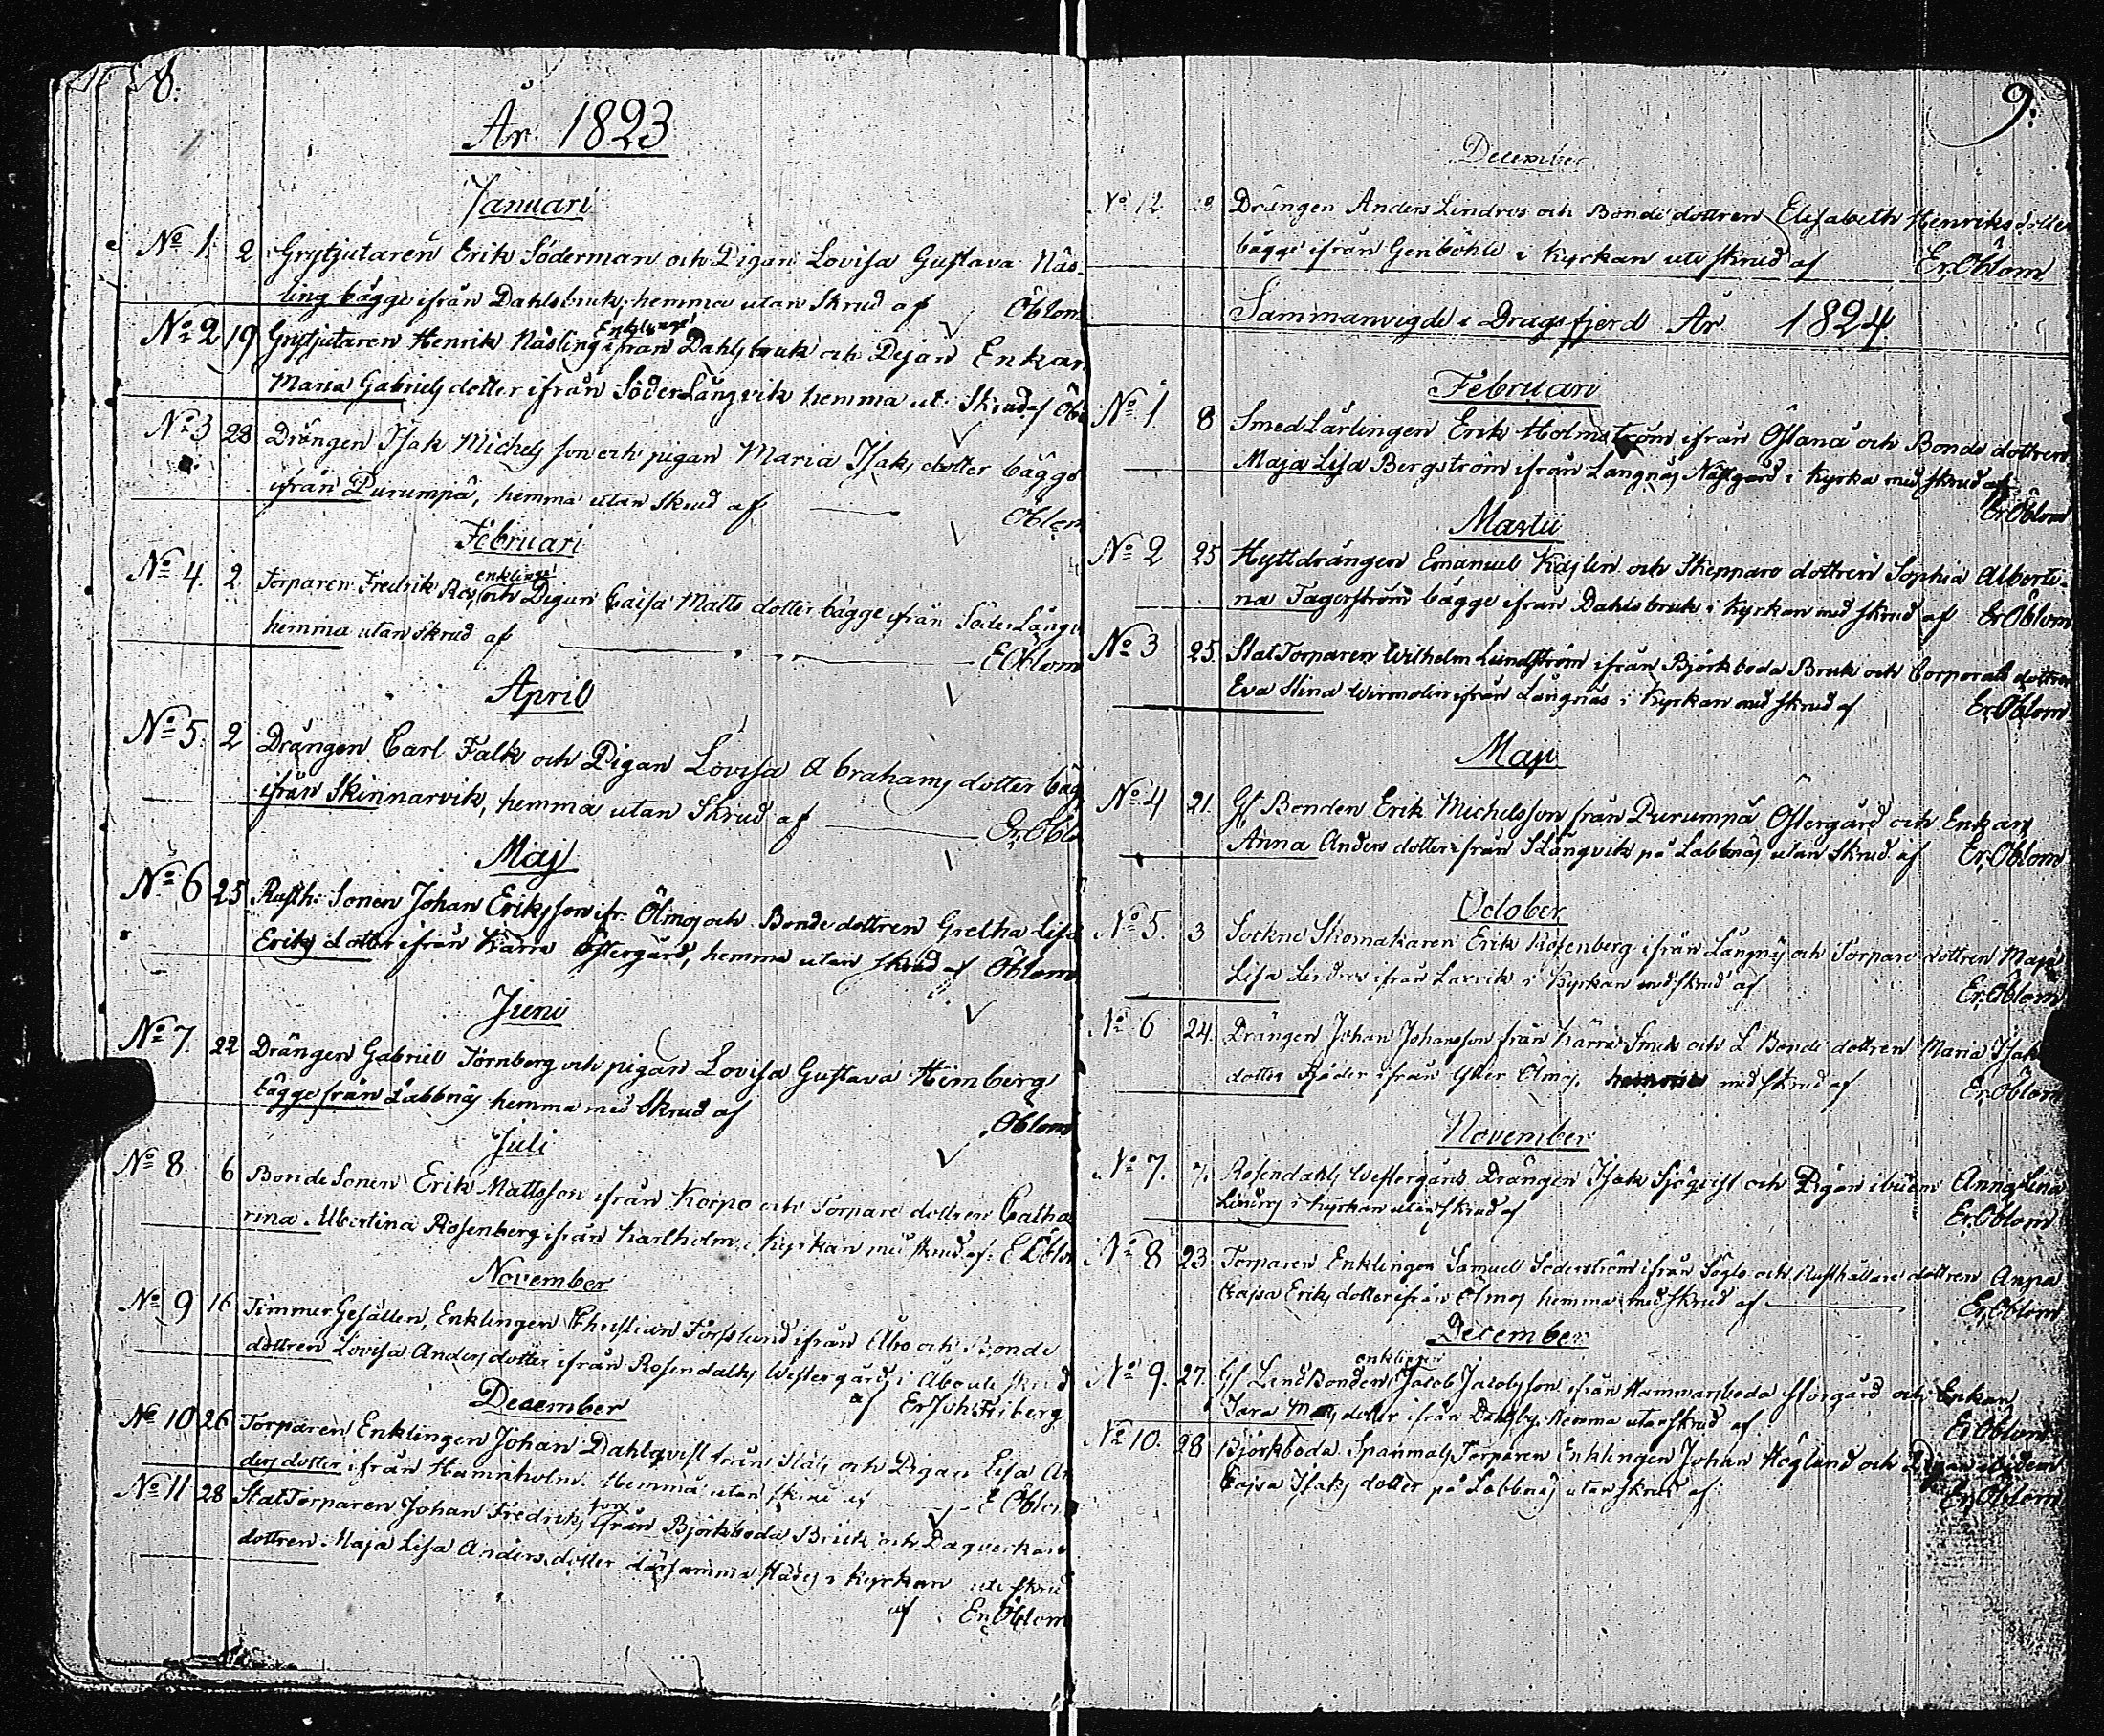 8.
År 1823
Januari
No 1. 2 Grytjutaren Erik Söderman och Pigan Lovisa Gustava Näs-
ling bägge ifrån Dahlsbruk, hemma utan Skrud af Öblom
Enklingen
No 2 19 Grytjutaren Henrik Näsling ifrån Dahlsbruk och Pejan Enkan
Maria Gabrielsdotter ifrån Söder Långvik hemma ut. Skrud af Öbl
No 3 28 Drängen Isak Michelsson och pigan Maria Isaksdotter bägge
ifrån Purumpä, hemma utan Skrud af Öblom
Februari
enklinge
No 4. 2 Torparen Fredrik Ros, och Pigan Caisa Matts dotter bägge ifrån Söder Långv
hemma utan Skrud af E Öblom
April
No 5. 2 Drängen Carl Falk och Pigan Lovisa Abrahams dotter bäg
ifrån Skinnarvik, hemma utan Skrud af Er. Öblo
Maj
No 6 25 Rusth. Sonen Johan Eriksson ifr. Ölmos och Bonde dottren Gretha Lisa
Eriks dotter ifrån Kärra Östergård, hemma utan skrud af Öblom
Juni
No 7. 22 Drängen Gabriel Törnberg och pigan Lovisa Gustava Himberg
bägge från Labbnäs hemma med Skrud af Öblom
Juli
No 8. 6 Bonde Sonen Erik Mattsson ifrån Korpo och Torpare dottren Catha
rina Albertina Rosenberg ifrån Karlholm, i Kyrkan med skrud af: E Öblom
November
No 9 16 Timmer Gesällen, Enklingen Christian Forsslund ifrån Åbo och Bonde
dottren Lovisa Anders dotter ifrån Rosendahls Westergård, i Åbo utı skrud
af Er Joh: Friberg
December
No 10 26 Torparen Enklingen Johan Dahlqvist från Näs och Pigan Lisa An
ders dotter ifrån Hamnholm. Hemma utan skrud af E Öblom
son
No 11 28 Stat Torparen Johan Fredriks ifrån Björkboda Bruk och Dagverkare
dottren Maja Lisa Anders dotter därsamma städes i Kyrkan uti skrud
af Er Öblom
9.
December
No 12 28 Drängen Anders Lindros och Bonde dottren Elisabeth Henriksdotter
bägge ifrån Genböhle i Kyrkan uti skrud af Er. Öblom
Sammanvigde i Dragsfjerd År 1824.
Februari
No 1 8 Smed Lärlingen Erik Holmström ifrån Östanå och Bonde dottren
Maja Lisa Bergström ifrån Långnäs Nästgård i Kyrka med skrud af
Er Öblom
Martii
No 2 25 Hyttdrängen Emanuel Kajlin och Skeppare dottren Sophia Alberti-
na Fagerström bägge ifrån Dahlsbruk i Kyrkan med skrud af Er Öblom
No 3 25. Stat Torparen Wilhelm Lundström ifrån Björkboda Bruk och Corporals dottren
Eva Stina Wirmolin ifrån Långnäs i Kyrkan med skrud af Er. Öblom
Maji
No 4 21. Gl Bonden Erik Michelsson från Purumpä Östergård och Enkan
Anna Anders dotter ifrån S Långvik på Labbnäs utan Skrud af Er. Öblom
October
No 5. 3 Sockne Skomakaren Erik Rosenberg ifrån Långnäs och Torpare dottren Maja
Lisa Lindros ifrån Laxvik i Kyrkan med skrud af Er. Öblom
No 6 24. Drängen Johan Johansson från Kärra Smeds och L Bonde dottren Maria Isaks
dotter ifrån Ytter Ölmos. med skrud af Er. Öblom
November
No 7. 7. Rosendahls Westergårds Drängen Isak Sjöqvist och Pigan ibidem Anna Lina
Lindros i Kyrkan utan skrud af Er. Öblom
No 8 23 Torparen Enklingen Samuel Söderström ifrån Söglö och Rusthållare dottren Anna
Cajsa Eriks dotter ifrån Ölmos hemma med skrud af Er. Öblom
December
enklingen
No 9. 27. Gl Lind Bonden Jacob Jacobsson ifrån Hammarsboda Storgård och Enkan
Sara Matts dotter ifrån Dahlsby, Hemma utan Skrud af Er. Öblom
No 10. 28 Björkboda Spanmals Torparen Enklingen Johan Höglund och Pigan ibidem
Cajsa Isaks dotter på Labbnäs utan skrud af Er. Öblom